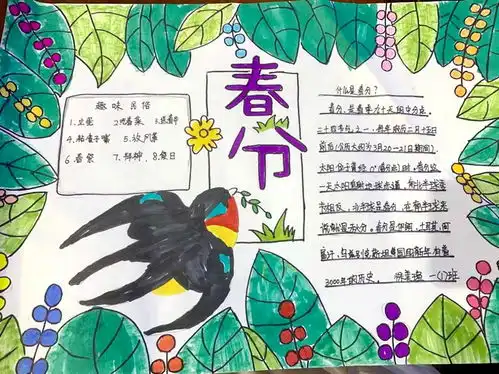 春分
趣味民俗
1.立蛋 2.吃春菜 3.送春牛
4.粘雀子嘴 5.放风筝
6.春祭 7.拜神 8.
什么是春分?
春分,是春季九十天的中分点。
二十四节气之一,每年农历二月十五日
前后(公历大约为3月20-21日期间),
太阳位于黄经0°(春分点)时。春分这
一天太阳直射地球赤道,
相反,北半球是春分,在南半球来
说就是秋分。春分是伊朗、土耳其、阿
富汗、乌兹别克斯坦等国的新年,有着
3000年的历史。 一(1)班